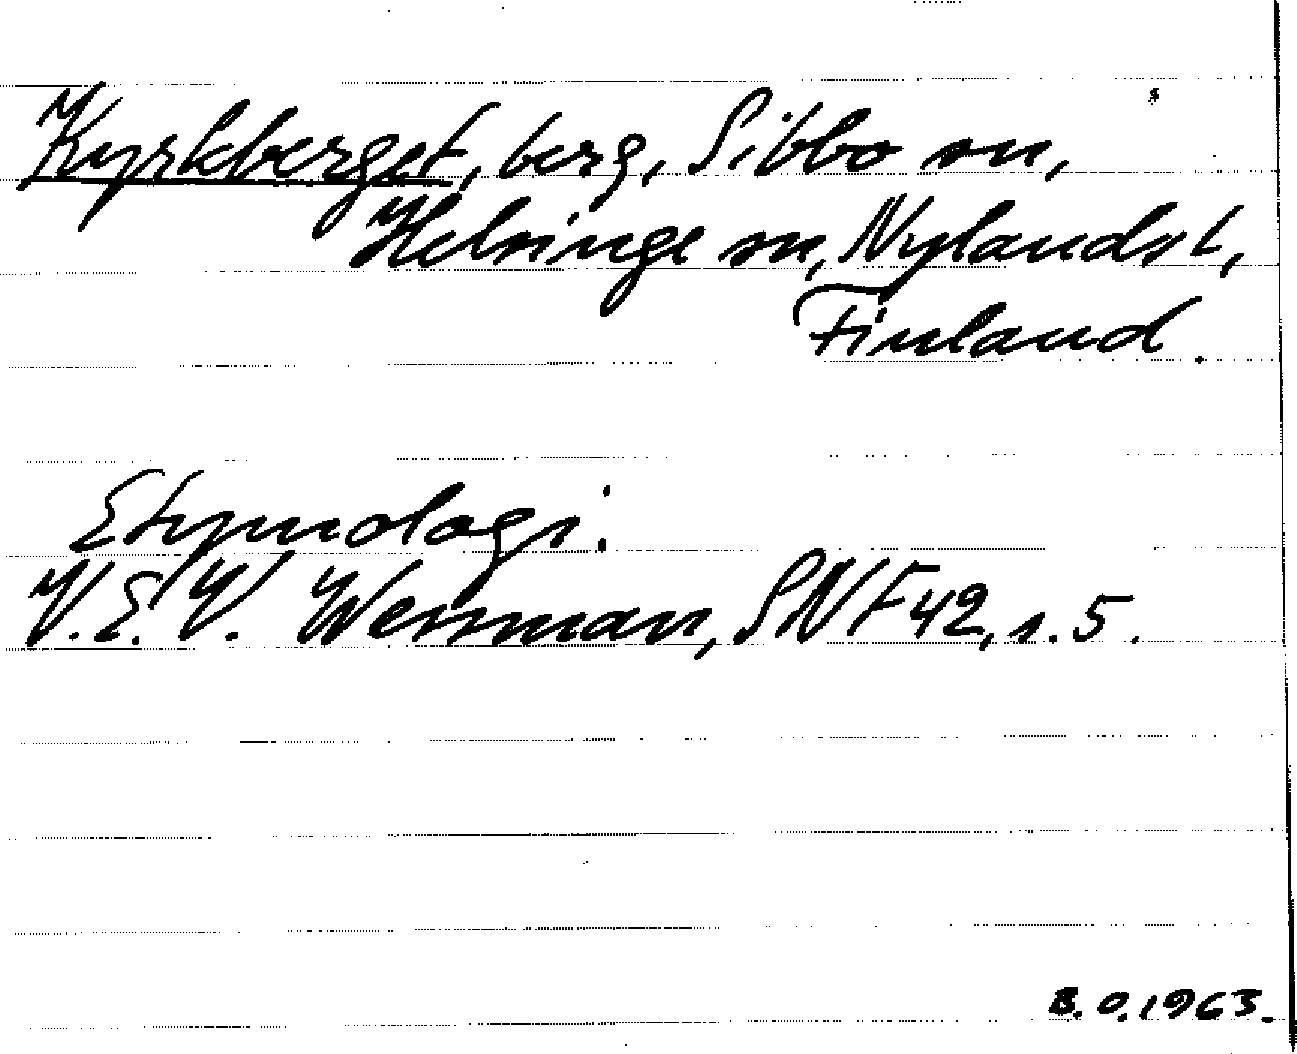 Kyrkberget, berg, Sibbo sn,
Helsinge sn, Nylands l,
Finland.
Etymologi:
V.E.V. Wessman, SNF 42, s. 5.
B.O. 1963.